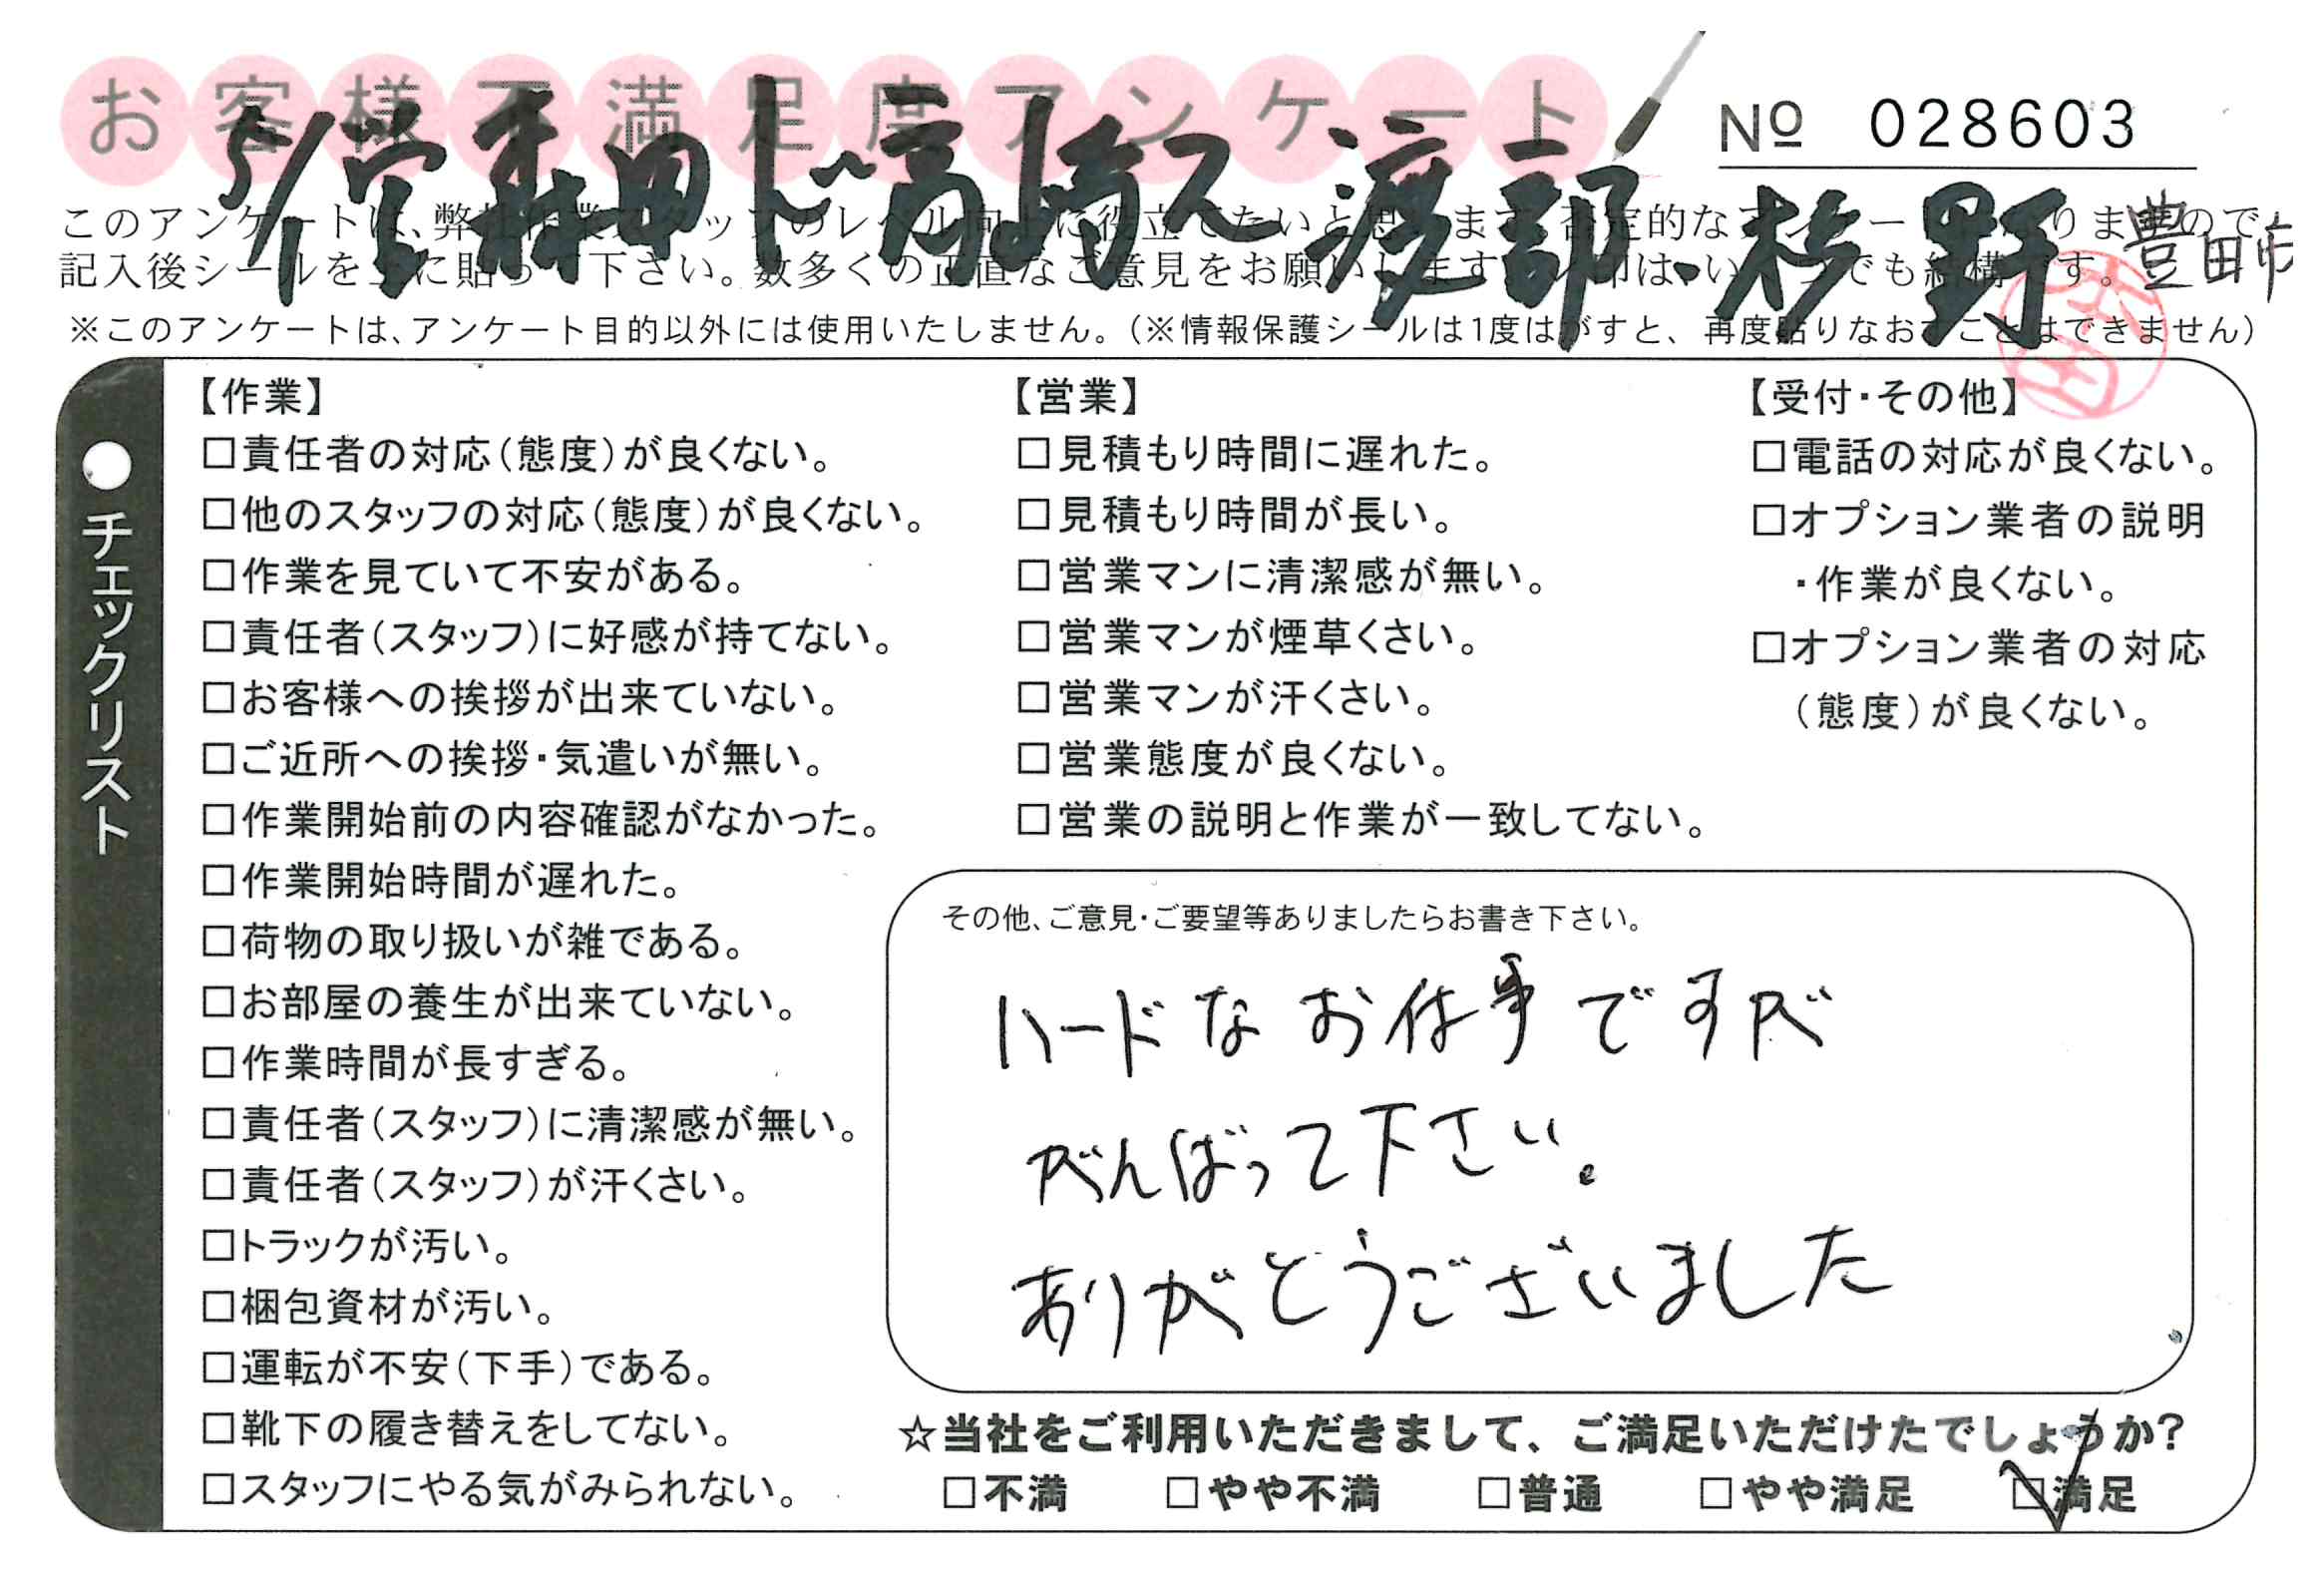 お客様不満足度アンケート
№ 028603
5/1 営 森田 ド 高崎 ス 渡部・杉野
豊田市
このアンケートは、弊社作業スタッフのレベル向上に役立てたいと思います。否定的なアンケートとなりますので、
記入後シールを上に貼って下さい。数多くの正直なご意見をお願いします。
※このアンケートは、アンケート目的以外には使用いたしません。（※情報保護シールは1度はがすと、再度貼りなおすことはできません）
●チェックリスト
【作業】
□責任者の対応（態度）が良くない。
□他のスタッフの対応（態度）が良くない。
□作業を見ていて不安がある。
□責任者（スタッフ）に好感が持てない。
□お客様への挨拶が出来ていない。
□ご近所への挨拶・気遣いが無い。
□作業開始前の内容確認がなかった。
□作業開始時間が遅れた。
□荷物の取り扱いが雑である。
□お部屋の養生が出来ていない。
□作業時間が長すぎる。
□責任者（スタッフ）に清潔感が無い。
□責任者（スタッフ）が汗くさい。
□トラックが汚い。
□梱包資材が汚い。
□運転が不安（下手）である。
□靴下の履き替えをしてない。
□スタッフにやる気がみられない。
【営業】
□見積もり時間に遅れた。
□見積もり時間が長い。
□営業マンに清潔感が無い。
□営業マンが煙草くさい。
□営業マンが汗くさい。
□営業態度が良くない。
□営業の説明と作業が一致してない。
【受付・その他】
□電話の対応が良くない。
□オプション業者の説明
・作業が良くない。
□オプション業者の対応
（態度）が良くない。
その他、ご意見・ご要望等ありましたらお書き下さい。
ハードなお仕事ですが
がんばって下さい。
ありがとうございました
☆当社をご利用いただきまして、ご満足いただけたでしょうか？
□不満 □やや不満 □普通 □やや満足 ☑満足